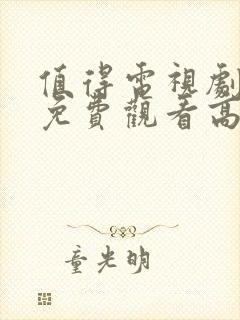 值得電視劇
免費觀看高
童光明